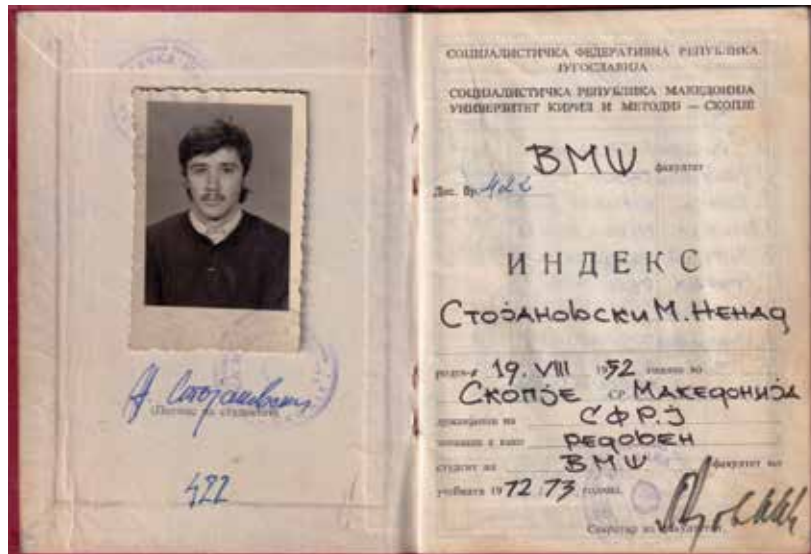 Н. Стојановски
(Потпис на студентот)
422
СОЦИЈАЛИСТИЧКА ФЕДЕРАТИВНА РЕПУБЛИКА
ЈУГОСЛАВИЈА
СОЦИЈАЛИСТИЧКА РЕПУБЛИКА МАКЕДОНИЈА
УНИВЕРЗИТЕТ КИРИЛ И МЕТОДИЈ — СКОПЈЕ
ВМШ факултет
Дос. Бр. 422
ИНДЕКС
Стојановски М. Ненад
роден 19. VIII 1952 година во
Скопје СР Македонија
државјанин на СФРЈ
запишан е како редовен
студент на ВМШ факултет во
учебната 1972/73 година.
Секретар на факултетот,